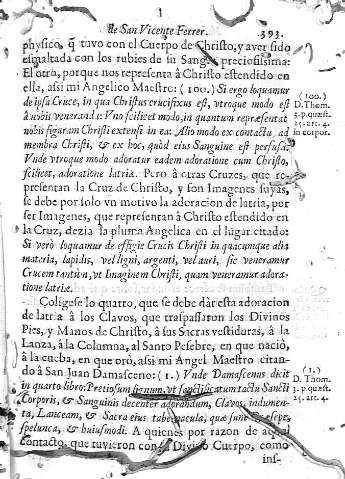 de San Vicente Ferrer. 393.
physico, q̃ tuvo con el Cuerpo de Christo, y aver sido
esmaltada con los rubies de su Sangre preciosissima:
El otro, porque nos representa à Christo estendido en
ella, assi mi Angelico Maestro: (100.) Si ergo loquamur
de ipsa Cruce, in qua Christus crucifixus est, vtroque modo est
à nobis veneranda: Vno scilicet modo, in quantum repræsentat
nobis figuram Christi extensi in ea: Alio modo ex contactu ad
membra Christi, & ex hoc, quòd eius Sanguine est perfusa.
Vnde vtroque modo adoratur eadem adoratione cum Christo,
scilicet, adoratione latriæ. Pero à otras Cruzes, que re-
presentan la Cruz de Christo, y son Imagenes suyas,
se debe por solo vn motivo la adoracion de latria, por
ser Imagenes, que representan à Christo estendido en
la Cruz, dezia la pluma Angelica en el lugar citado:
Si verò loquamur de effigie Crucis Christi in quacumque alia
materia, lapidis, vel ligni, argenti, vel auri, sic veneramur
Crucem tantùm, vt Imaginem Christi, quam veneramur adora-
tione latriæ.
Coligese lo quarto, que se debe dàr esta adoracion
de latria à los Clavos, que traspassaron los Divinos
Pies, y Manos de Christo, à sus Sacras vestiduras, à la
Lanza, à la Columna, al Santo Pesebre, en que naciò,
à la cueba, en que orò, assi mi Angel Maestro citan-
do à San Juan Damasceno: (1.) Vnde Damascenus dicit
in quarto libro: Pretiosum lignum, vt sanctificatum tactu Sancti
Corporis, & Sanguinis decenter adorandum, Clavos, indumen-
ta, Lanceam, & Sacra eius tabernacula, quæ sunt Præsepe,
spelunca, & huiusmodi. A quienes por razon de aquel
contacto, que tuvieron con el Divino Cuerpo, como
ins-
(100.)
D. Thom.
3. p. quæst.
25. art. 4.
in corpor.
(1.)
D. Thom.
3. p. quæst.
25. art. 4.